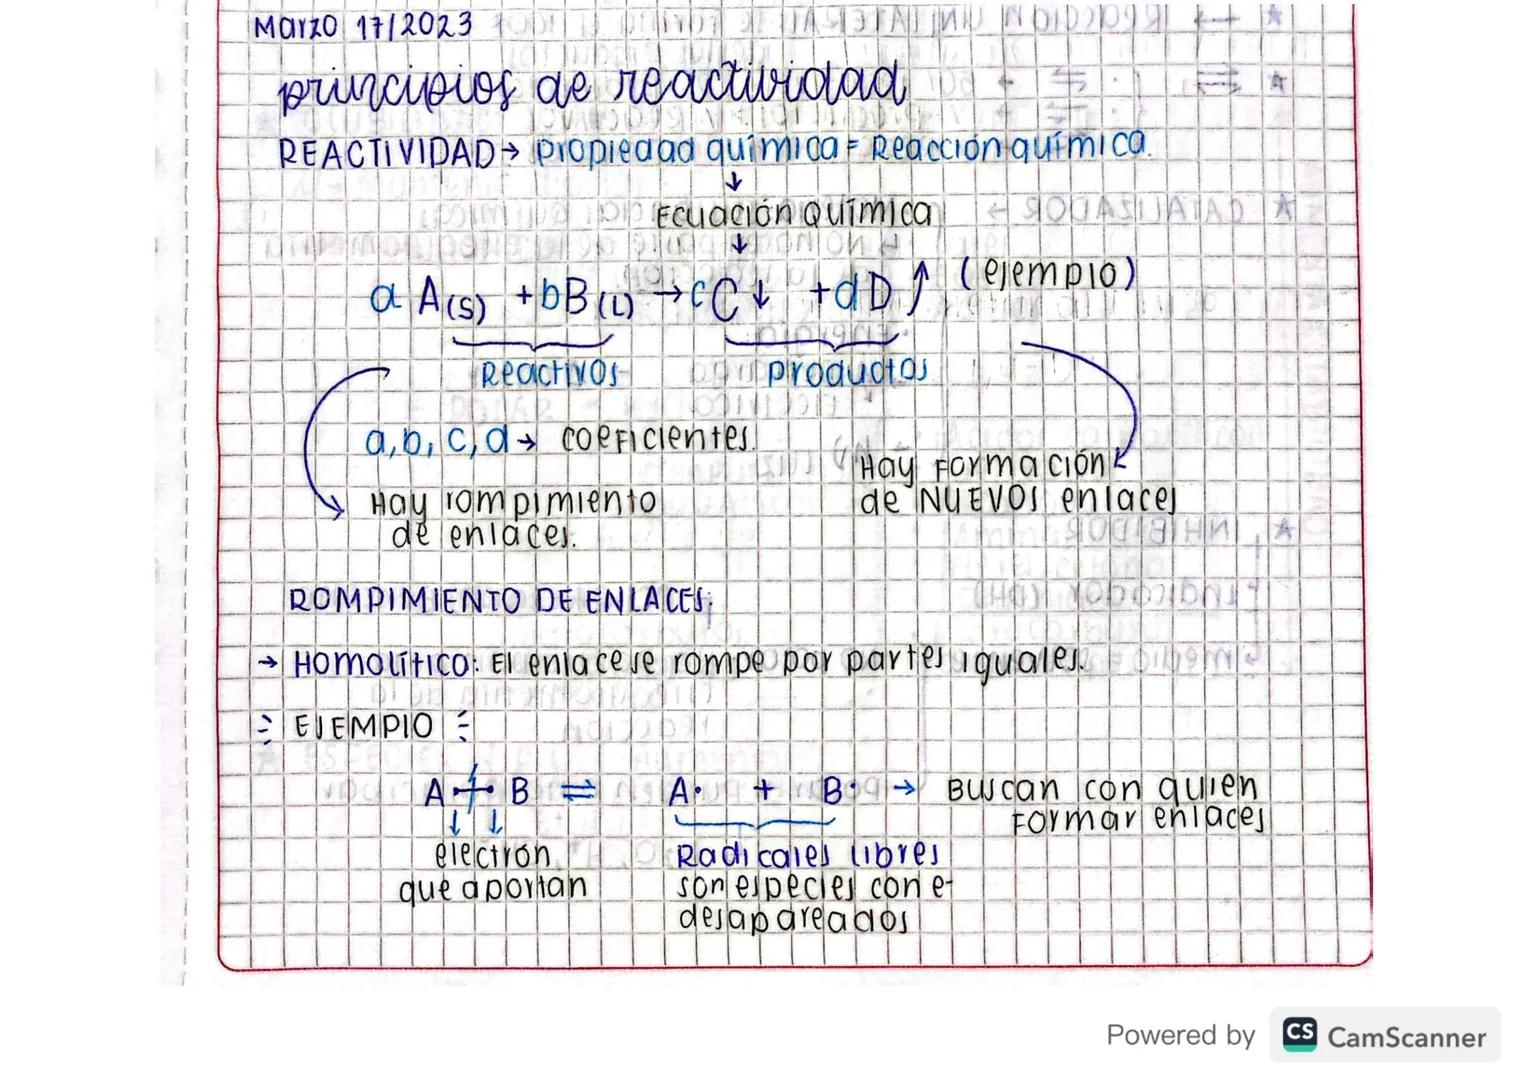 Marzo 17/2023
principios de reactividad
REACTIVIDAD → propiedad química = Reacción química.
↓
Ecuación Química
↓
a A(s) + bB(L) → cC↓ + dD↑ (ejemplo)
Reactivos productos
a, b, c, d → coeficientes.
Hay formación
de NUEVOS enlaces
Hay rompimiento
de enlaces.
ROMPIMIENTO DE ENLACES:
→ Homolítico: El enlace se rompe por partes iguales.
EJEMPLO
A · · B ⇌ A· + B· → Buscan con quien
formar enlaces
↓ ↓
electrón Radicales libres
que aportan son especies con e-
desapareados
Powered by CS CamScanner